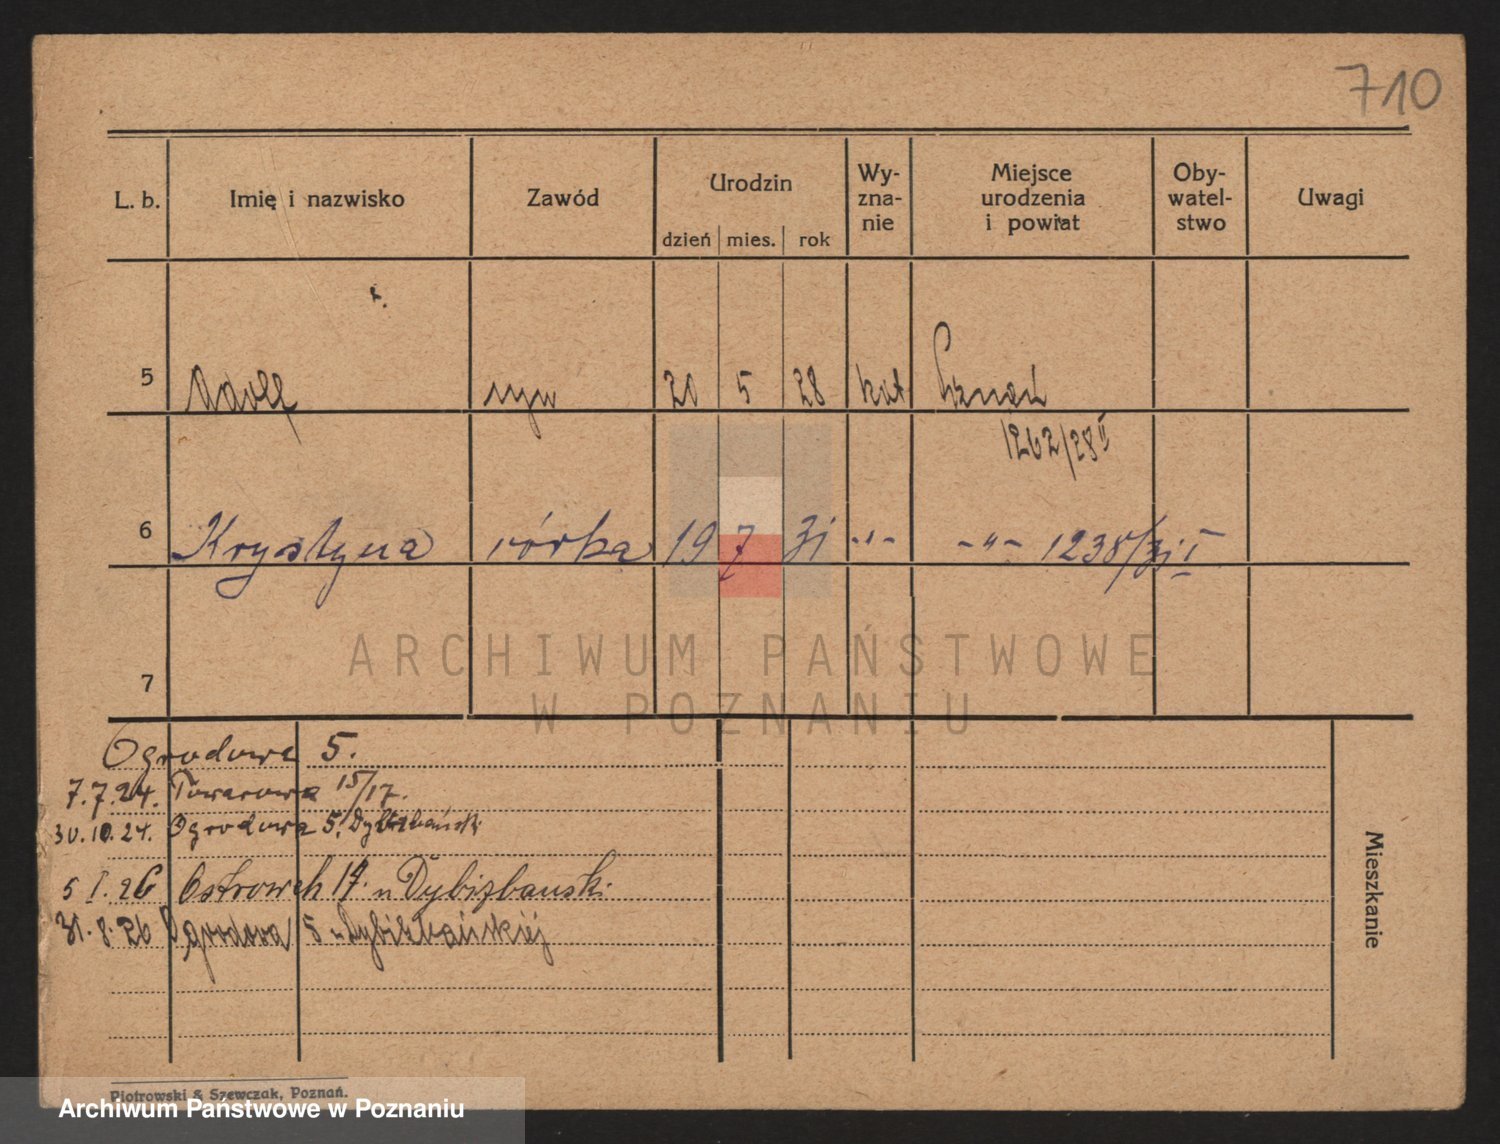 710
L. b. Imię i nazwisko Zawód Urodzin dzień mies. rok Wy-zna-nie Miejsce urodzenia i powiat Oby-watel-stwo Uwagi
5 Adolf syn 20 5 28 kat Poznań
1262/28 II
6 Krystyna córka 19 7 31 -"- -"- 1238/31 I
7
ARCHIWUM PAŃSTWOWE
W POZNANIU
Ogrodowa 5.
7.7.24. Towarowa 15/17.
30.10.24. Ogrodowa 5. Dybizbański
5 I. 26 Ostrowek 17. u Dybizbanski.
31.8.26 Ogrodowa 5 u Dybizbańskiej
Mieszkanie
Piotrowski & Szewczak, Poznań.
Archiwum Państwowe w Poznaniu